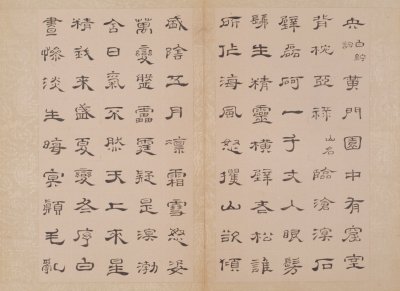 央黃門園中有窟室
背枕亞祿山名臨滄溟石
壁磊砢一千丈人眼髣
髴生精靈橫壁古松誰
所作海風怒攫山欲傾
盛陰五月凛霜雪怒姿
萬變靁霆疑是溟渤
含日氣不然天上來星
精我來盛夏變冬序白
晝慘淡生晦冥顛毛亂